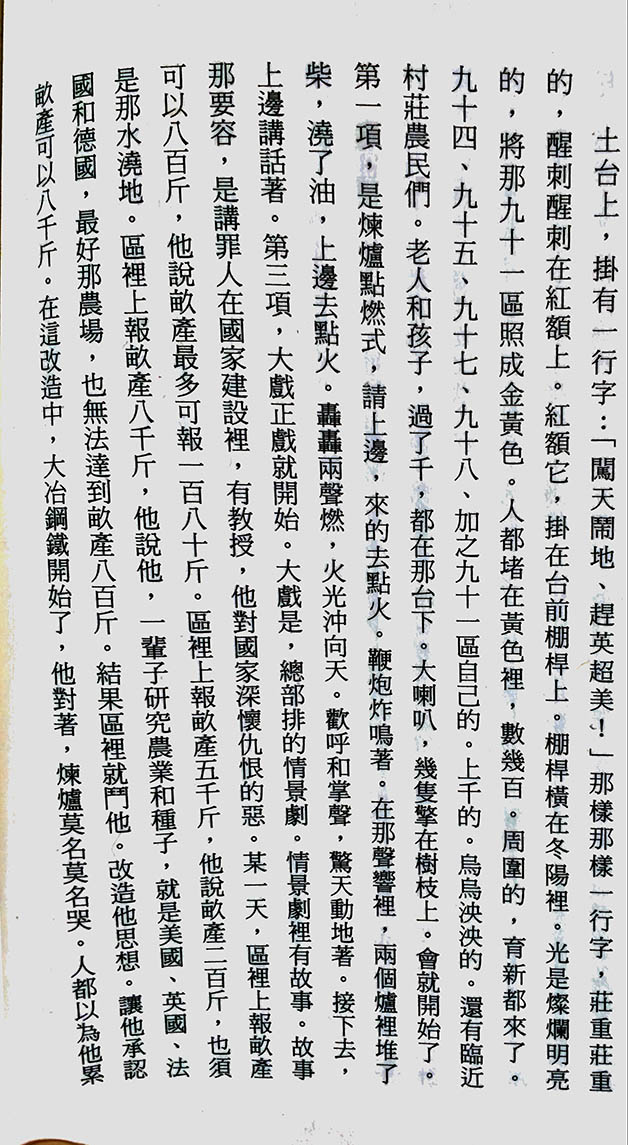 土台上，掛有一行字：「闖天鬧地、趕英超美！」那樣那樣一行字，莊重莊重
的，醒刺醒刺在紅額上。紅額它，掛在台前棚桿上。棚桿橫在冬陽裡。光是燦爛明亮
的，將那九十一區照成金黃色。人都堵在黃色裡，數幾百。周圍的，育新都來了。
九十四、九十五、九十七、九十八、加之九十一區自己的。上千的。烏烏泱泱的。還有臨近
村莊農民們。老人和孩子，過了千，都在那台下。大喇叭，幾隻擎在樹枝上。會就開始了。
第一項，是煉爐點燃式，請上邊，來的去點火。鞭炮炸鳴著。在那聲響裡，兩個爐裡堆了
柴，澆了油，上邊去點火。轟轟兩聲燃，火光沖向天。歡呼和掌聲，驚天動地著。接下去，
上邊講話著。第三項，大戲正戲就開始。大戲是，總部排的情景劇。情景劇裡有故事。故事
那要容，是講罪人在國家建設裡，有教授，他對國家深懷仇恨的惡。某一天，區裡上報畝產
可以八百斤，他說畝產最多可報一百八十斤。區裡上報畝產五千斤，他說畝產二百斤，也須
是那水澆地。區裡上報畝產八千斤，他說他，一輩子研究農業和種子，就是美國、英國、法
國和德國，最好那農場，也無法達到畝產八百斤。結果區裡就鬥他。改造他思想。讓他承認
畝產可以八千斤。在這改造中，大冶鋼鐵開始了，他對著，煉爐莫名莫名哭。人都以為他累